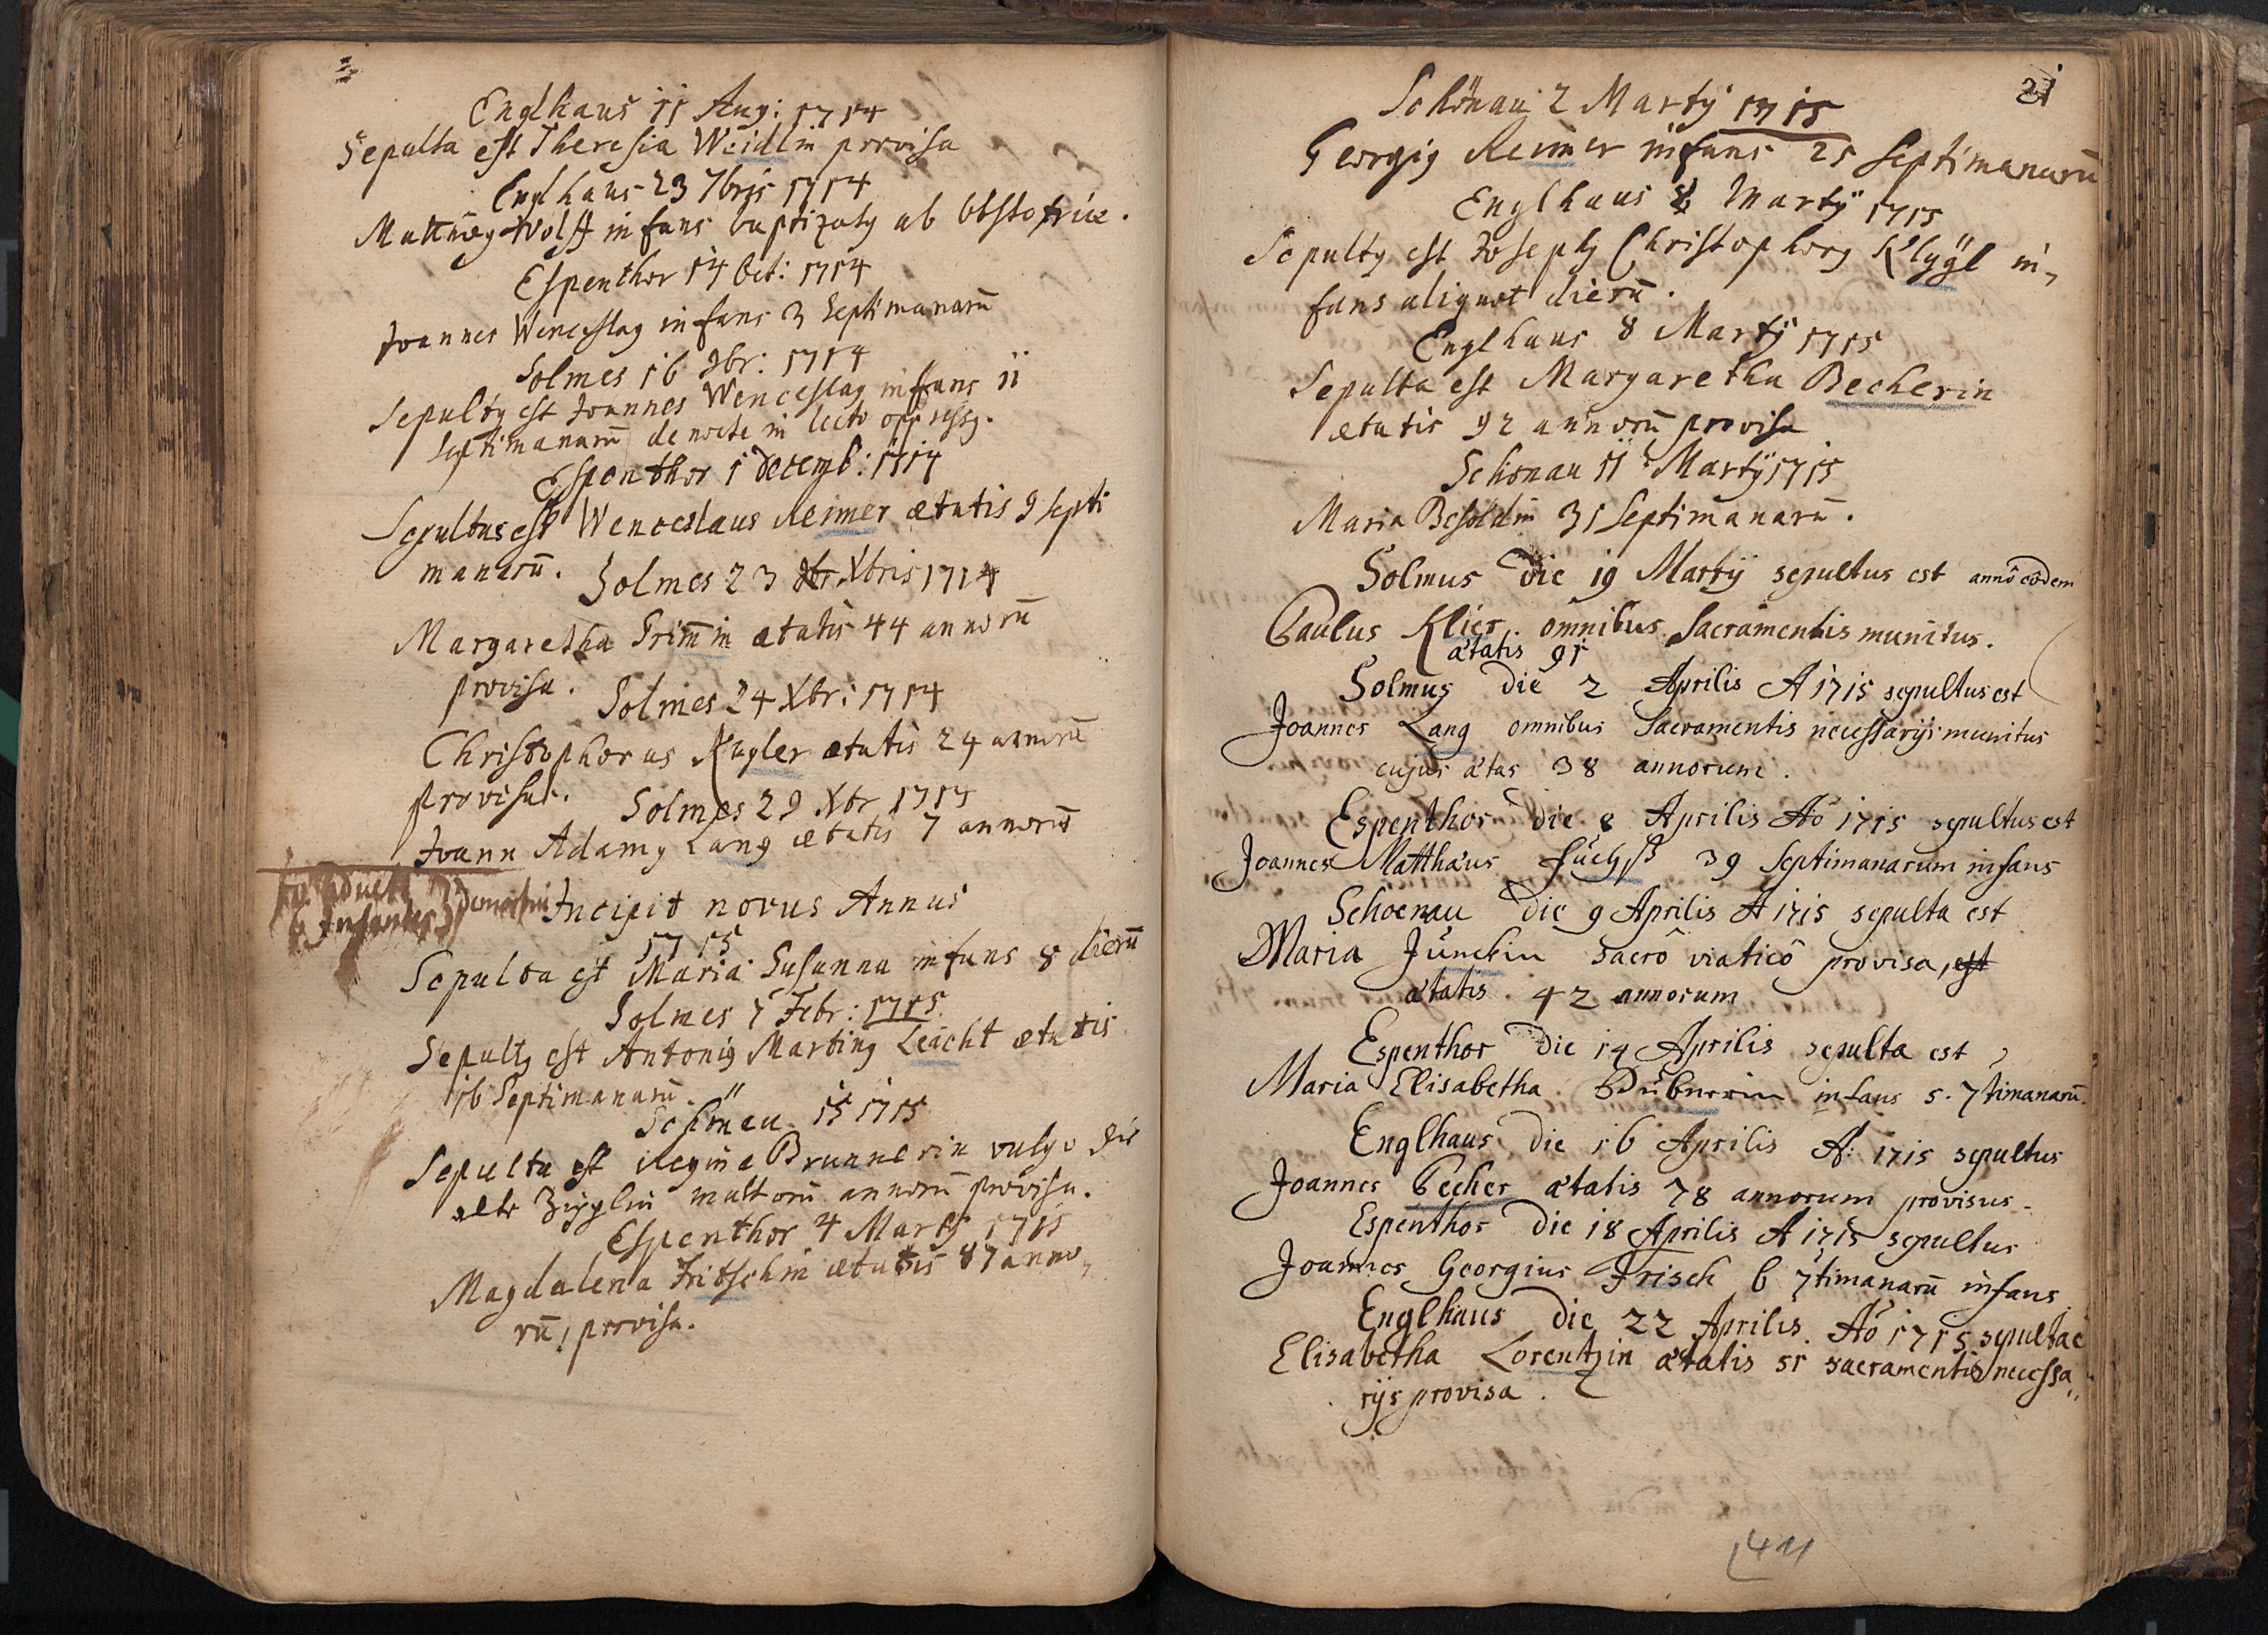 Englhaus 11 Aug: 1714
Sepulta est Theresia Weidlin provisa
Englhaus 23 7bris 1714
Wolff infans baptizatq ab obstetrice.
Espenthor 14 Oct: 1714
Joannes Wenceslaq infans 3 Septimanarū
Solmes 16 9br: 1714
Sepultq est Joannes Wenceslaq infans 11
Septimanarū de nocte in lecto oppressq.
Espenthor 1 Decemb: 1714
Sepultus est Wenceslaus Reimer ætatis 9 septi
manarū.
Solmes 23 Xbris 1714
Margaretha Grim̄in ætatis 44 annorū
provisa.
Solmes 24 Xbr: 1714
Christophorus Kugler ætatis 24 annorū
provisus.
Solmes 29 Xbr 1714
Joann Adamq Lang ætatis 7 annorū
Infantes
Incipit novus Annus
1715
Sepulta est Maria Susanna infans 8 dierū
Solmes 7 Febr: 1715
Sepultq est Antoniq Martinq Leicht ætatis
16 Septimanarū.
Schönau 15 1715
Sepulta est Regina Brunnerin vulgo die
alte multorū annorū provisa.
Espenthor 4 Martÿ 1715
Magdalena Fritschin ætatis 87 anno,
rū, provisa.
21
Schönau 2 Martÿ 1715
Georgiq Reimer infans 25 septimanarū
Englhaus 8 Martÿ 1715
Sepultq est Josephq Christophorq Klÿgl in,
fans aliquot dierū.
Englhaus 8 Martÿ 1715
Sepulta est Margaretha Becherin
ætatis 92 annorū provisa
Schönau 11 Martÿ 1715
Maria Besoldin 31 Septimanarū.
Solmus Die 19 Martÿ sepultus est annô eôdem
Paulus Klier omnibus Sacramentis munitus.
ætatis 91
Solmus Die 2 Aprilis A 1715 sepultus est
Joannes Lang omnibus Sacramentis necessarijs munitus
cujus ætas 38 annorum.
Espenthor Die 8 Aprilis Aō 1715 sepultus est
Joannes Matthæus Füchß 39 Septimanarum infans
Schoenau Die 9 Aprilis A 1715 sepulta est
Maria Junckin sacrô viaticô provisa, est
ætatis 42 annorum
Espenthor Die 14 Aprilis sepulta est
Maria Elisabetha infans 5. 7timanarū.
Englhaus Die 16 Aprilis A: 1715 sepultus
Joannes Pecher ætatis 78 annorum provisus.
Espenthor Die 18 Aprilis A 1715 sepultus
Joannes Georgius Frisch 6 7timanarū infans
Englhaus Die 22 Aprilis Aō 1715 sepulta e
Elisabetha Lorentzin ætatis 51 sacramentis necessa,,
rijs provisa.